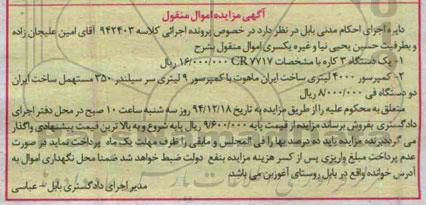 آگهی مزایده اموال منقول
دایره اجرای احکام مدنی بابل در نظر دارد در خصوص پرونده اجرائی کلاسه ۹۴۲۴۰۳ آقای امین علیجان زاده
و بطرفیت حسین یحیی نیا و غیره یکسری اموال منقول بشرح
۱- یک دستگاه ۳ کاره با مشخصات CR ۷۷۱۷ ۱۶/۰۰۰/۰۰۰ ریال
۲- کمپرسور ۴۰۰۰ لیتری ساخت ایران ماهوت با کمپرسور ۹ لیتری سر سیلندر ۳۵۰ مستهمل ساخت ایران
دو دستگاه فی ۸/۰۰۰/۰۰۰ ریال
متعلق به محکوم علیه را از طریق مزایده به تاریخ ۹۴/۱۲/۱۸ روز سه شنبه ساعت ۱۰ صبح در محل دفتر اجرای
دادگستری بفروش برساند مزایده از قیمت پایه ۹/۶۰۰/۰۰۰ ریال پایه شروع و به بالاترین قیمت پیشنهادی واگذار
می گردد برنده مزایده باید ده درصد بها را فی المجلس و مابقی را ظرف مهلت یک ماه پرداخت نماید در صورت
عدم پرداخت مبلغ واریزی پس از کسر هزینه مزایده بنفع دولت ضبط خواهد شد ضمنا محل نگهداری اموال به
آدرس خوانده واقع در بابل روستای آغوزبن می باشد
مدیر اجرای دادگستری بابل – عباسی